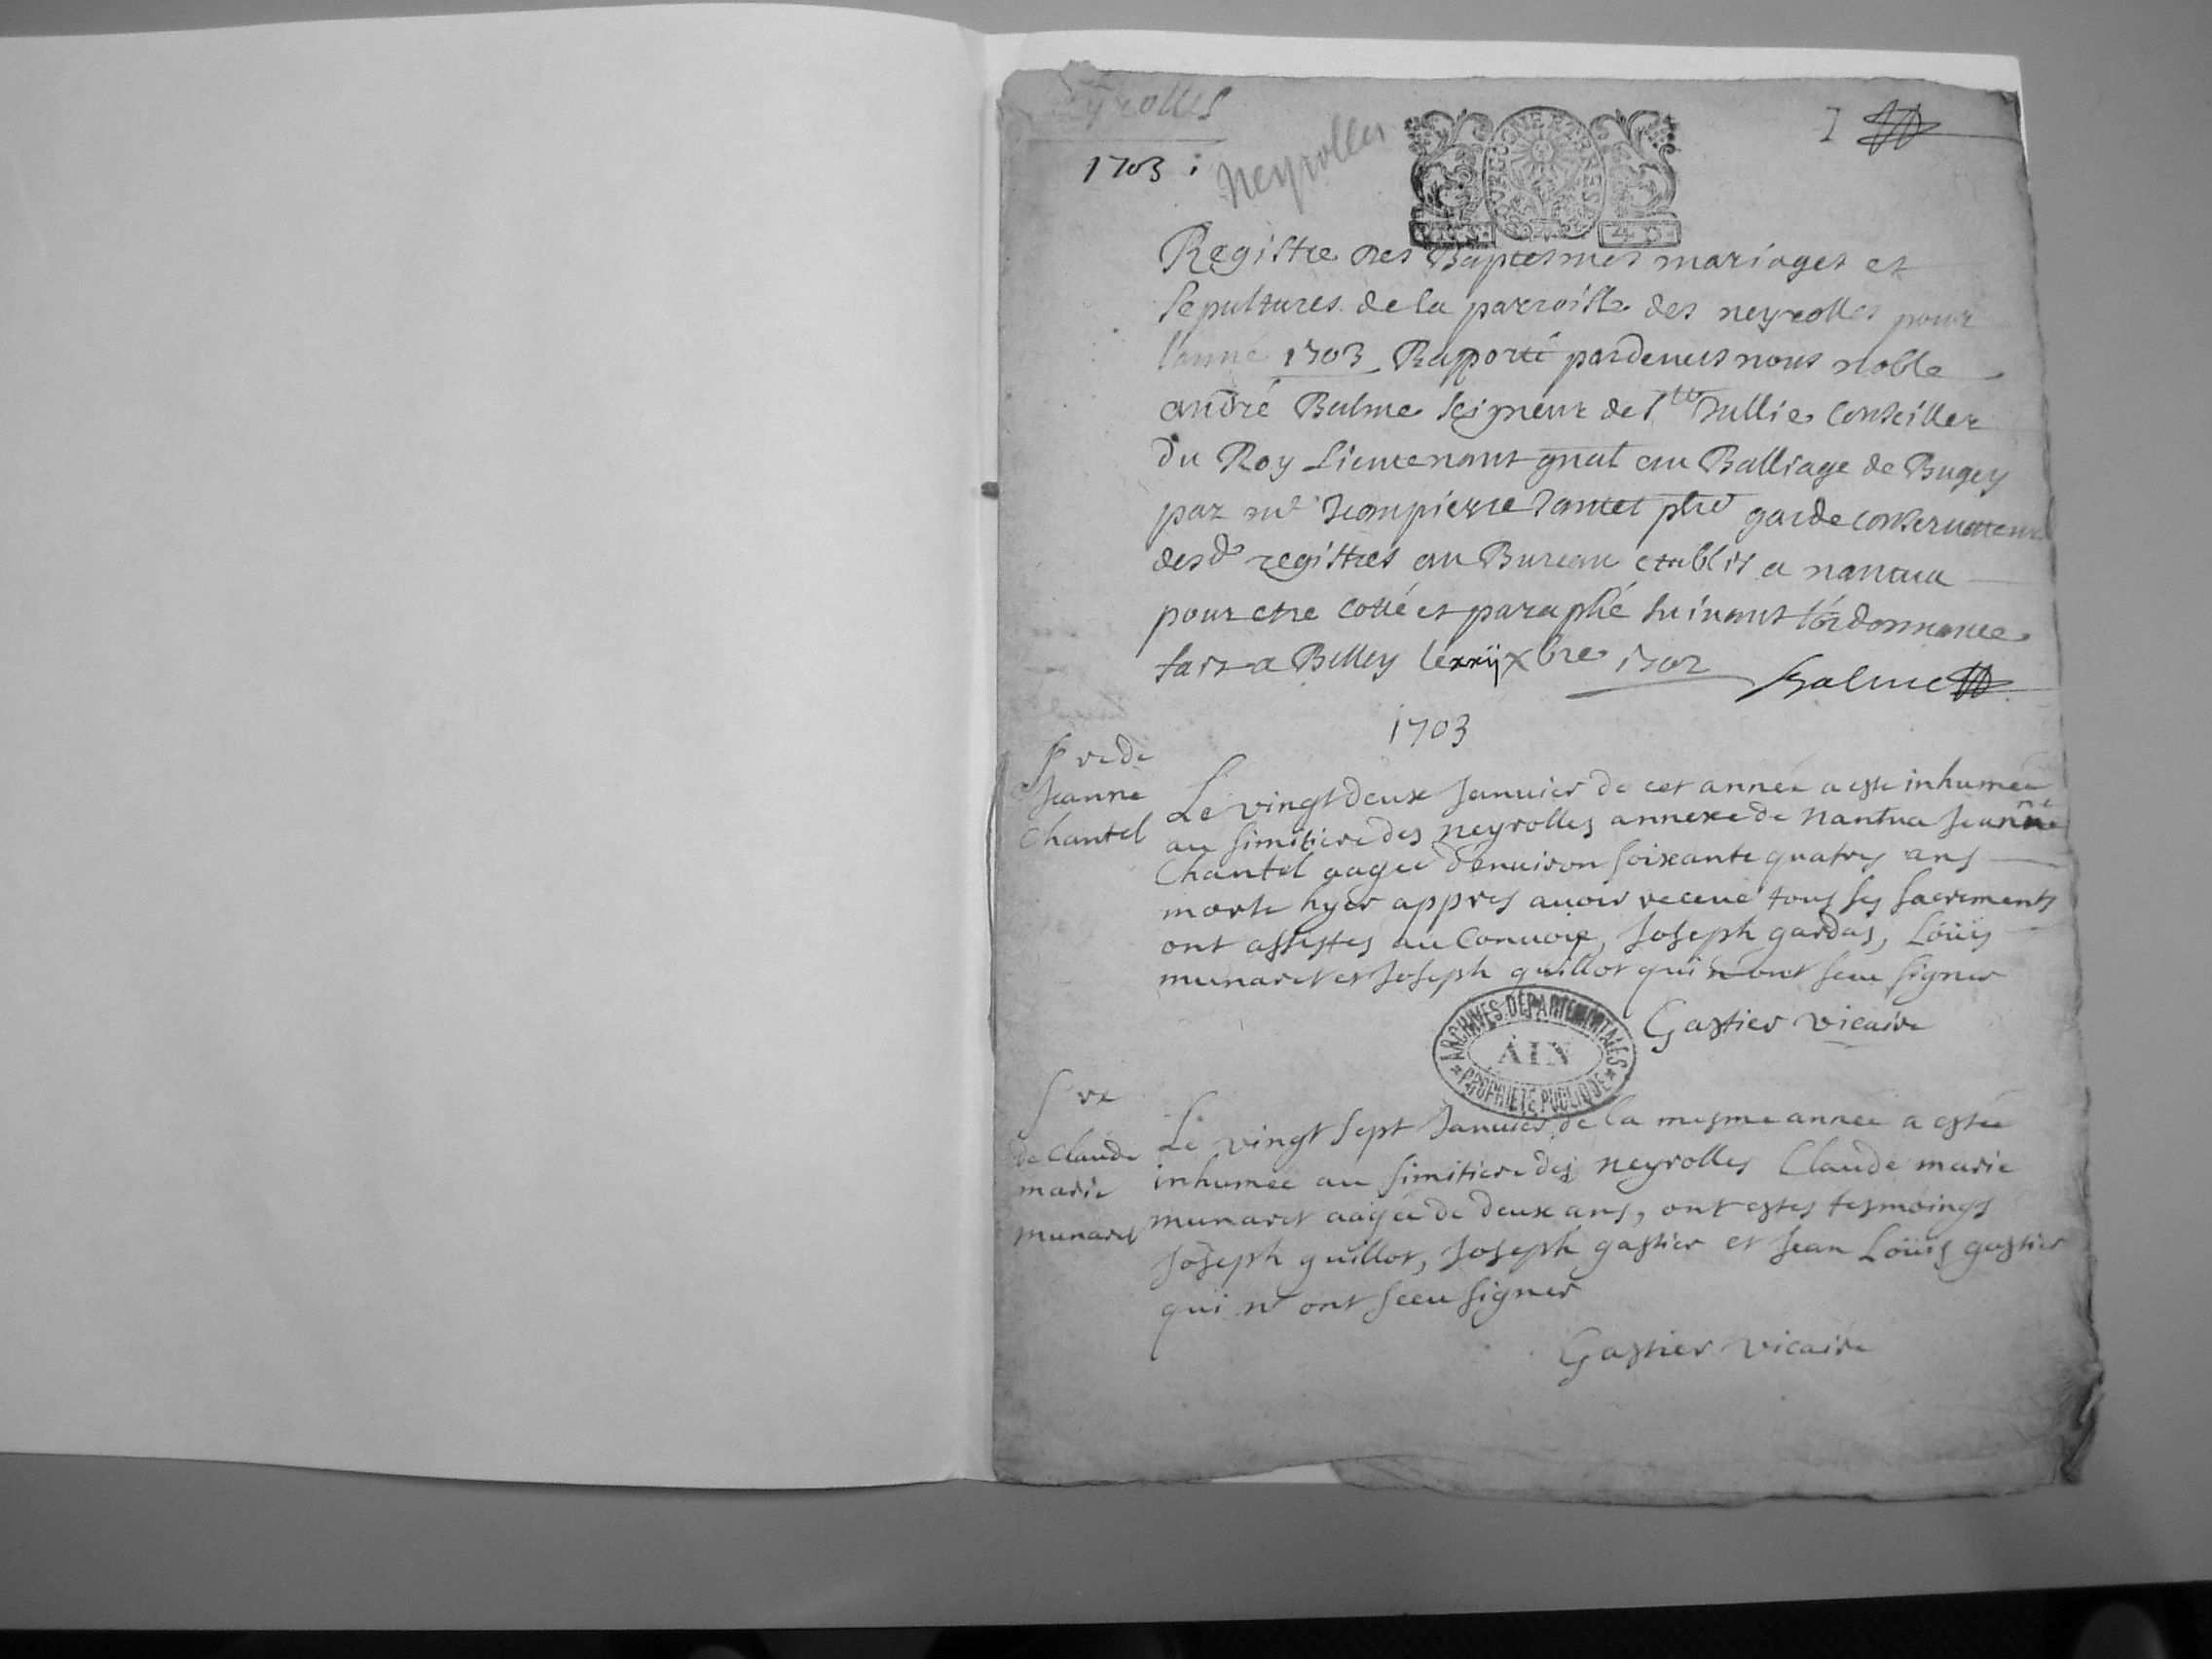 Neyrolles
1703
neyrolles
BOURGOGNE ET BRESSE
4 D
1
Registre des Baptesmes mariages et
sepultures de la parroisse des neyrolles pour
l'anné 1703 Rapporté pardeuers nous noble
andré Balme seigneur de Ste Jullie Conseiller
du Roy Lieutenant gnal au Balliage de Bugey
par mr Jeanpierre Jantet pbre garde conseruateur
desd registres au Bureau etablis a nantua
pour etre cotté et paraphé suiuant l'ordonnance
fait a Belley le xxij xbre 1702 Balme
1703
Sp re de
Jeanne
Chantel
Le vingt deux Januier de cet année a esté inhumée
au simitiere des neyrolles annexe de Nantua Jeanne
Chantel aagée d'enuiron soixante quatres ans
morte hyer appres auoir receue tous ses sacrements
ont assistes au Conuoie, Joseph gardas, Loüis
munaret et Joseph guillot qui n'ont sceu signer
Gastier vicaire
ARCHIVES DÉPARTEMENTALES
AIN
* PROPRIÉTÉ PUBLIQUE *
S re
de Claude
marie
munaret
Le vingt sept Januier de la mesme année a estée
inhumée au simitiere des neyrolles Claude marie
munaret aagée de deux ans, ont estes tesmoings
Joseph guillot, Joseph gastier et Jean Loüis gastier
qui n'ont sceu signer
Gastier vicaire